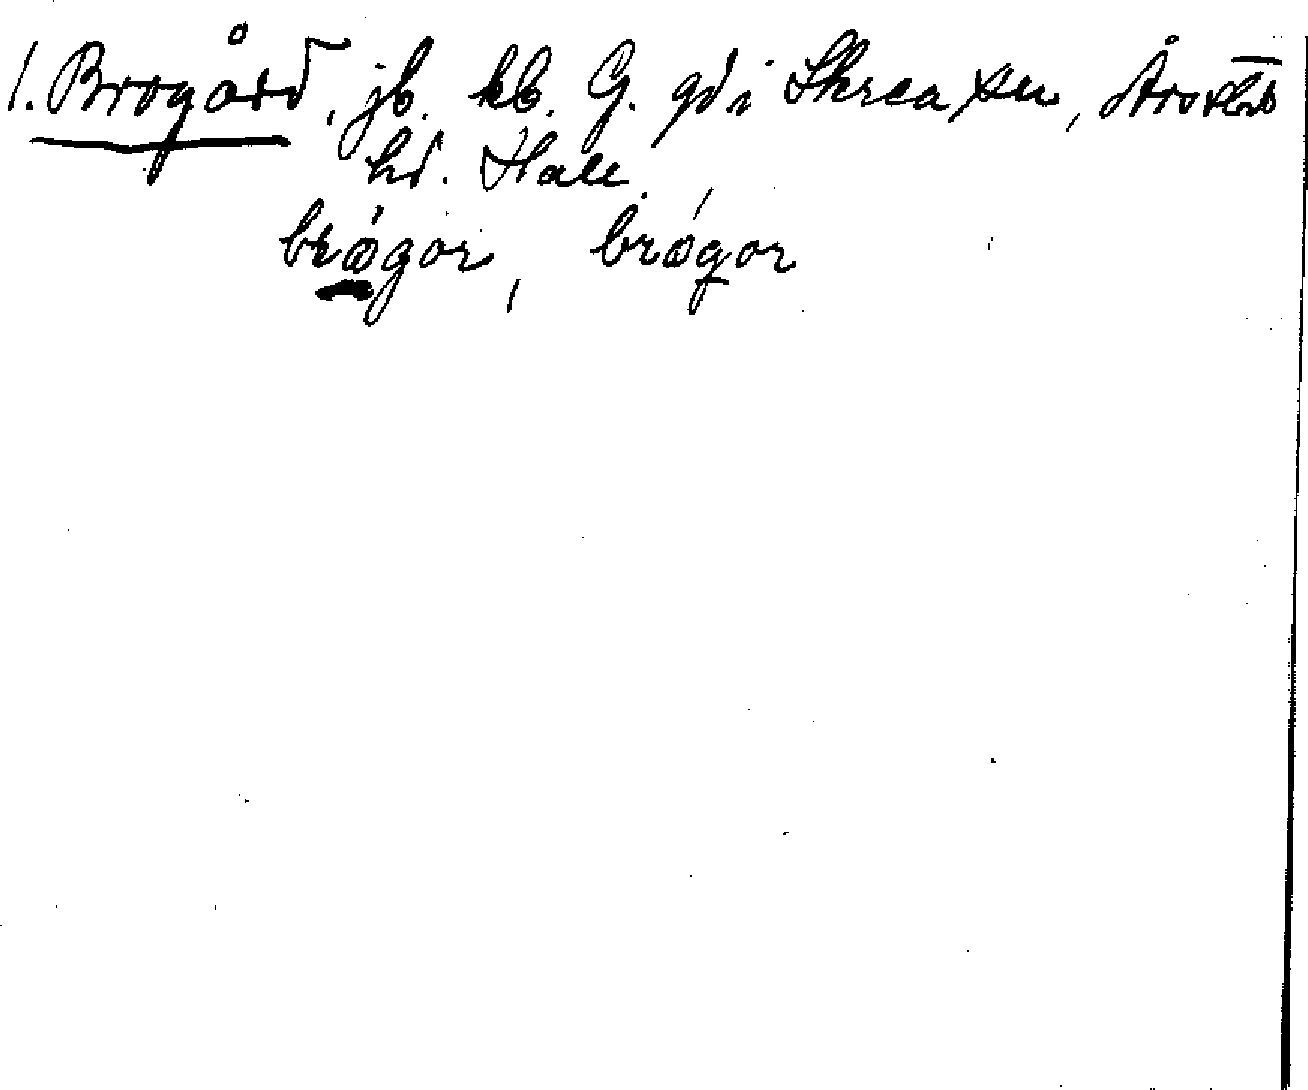 1. Brogård, jb. kb. G. gd i Skrea sn, Årstads
hd. Hall.
brǿgor, brǿgor